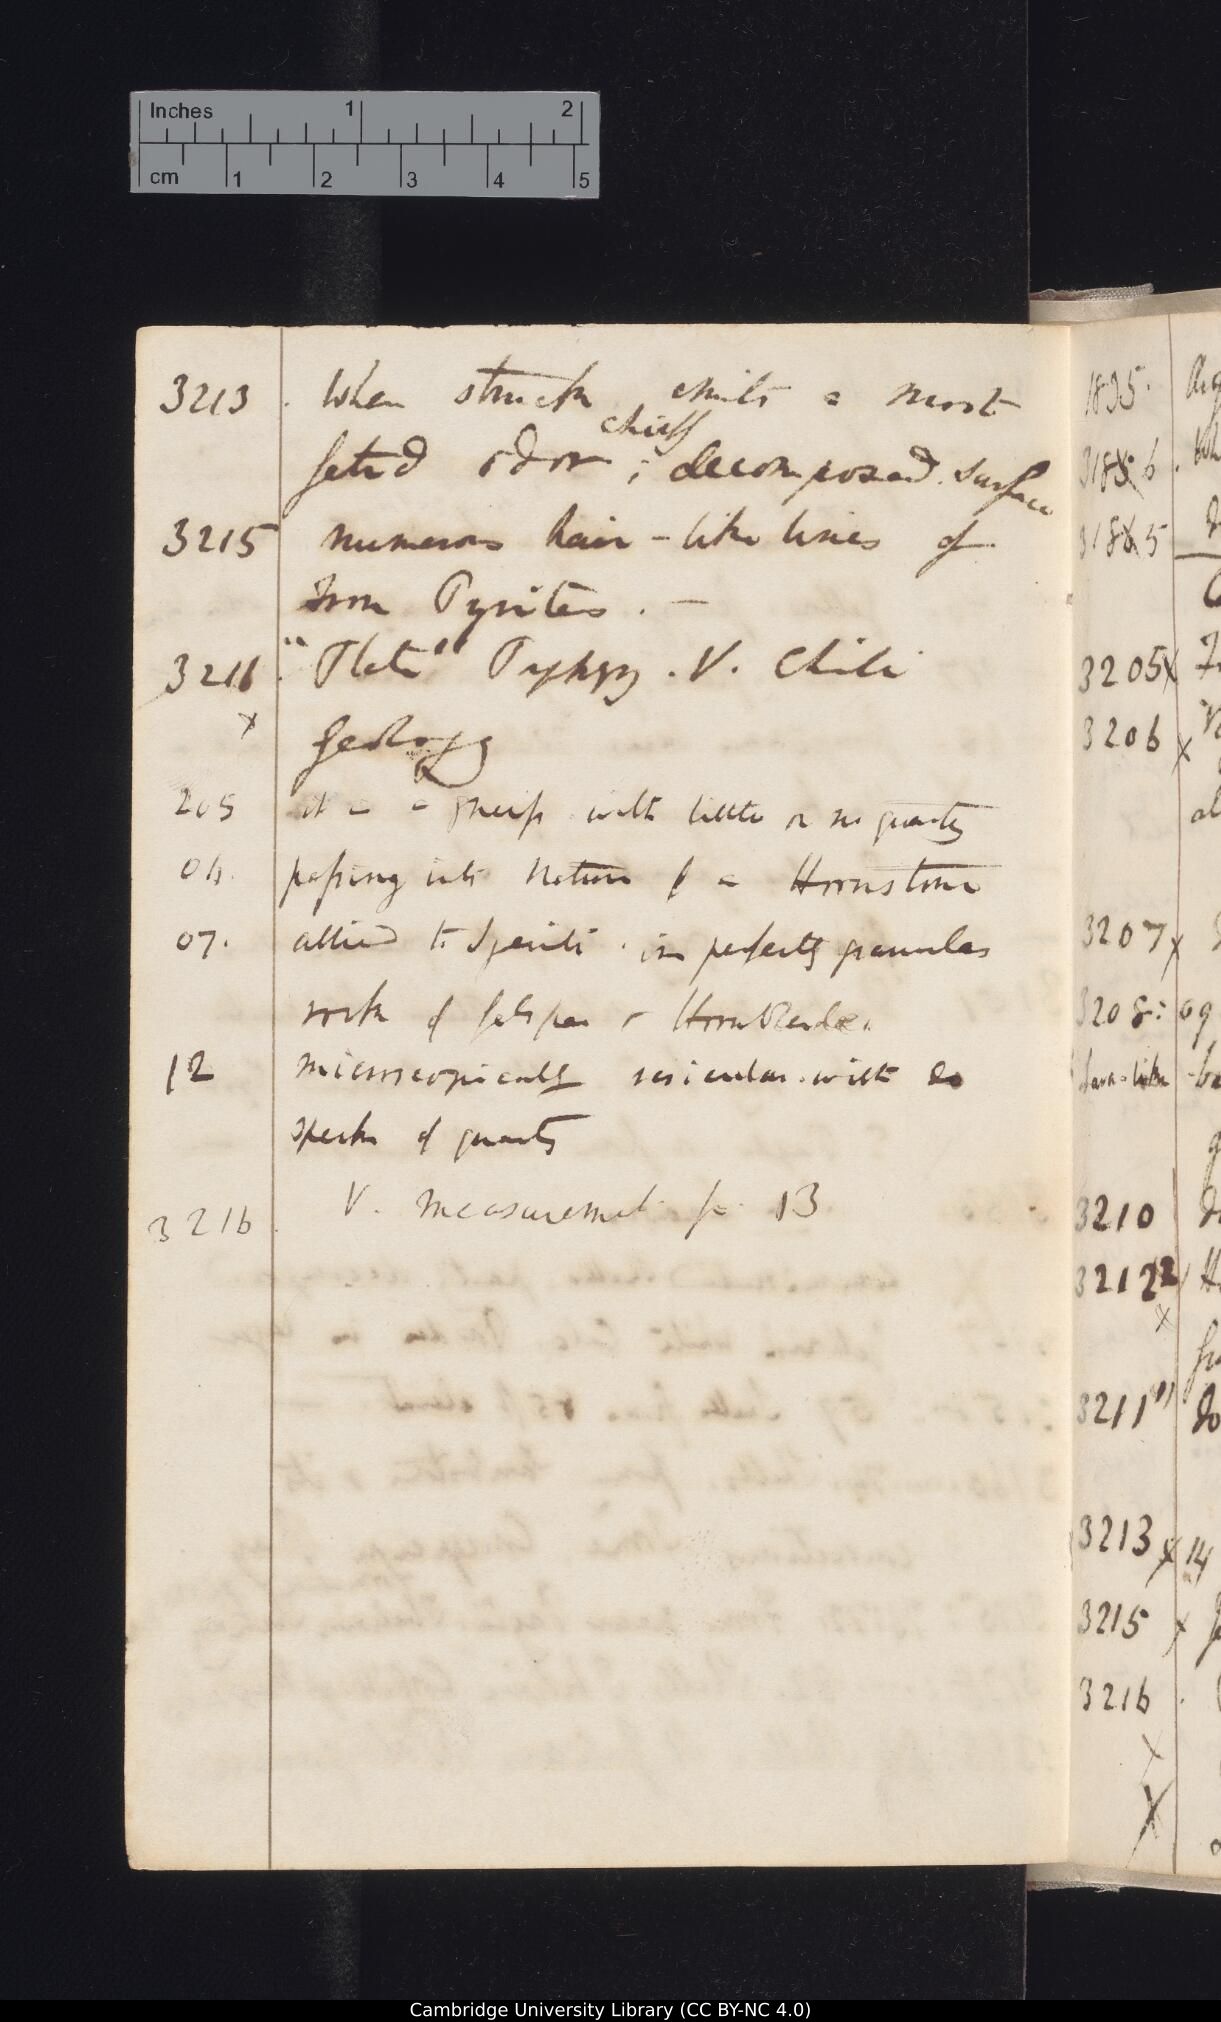 Inches 1 2
cm 1 2 3 4 5
3213 . When struck emits a most
chiefly
fetid odor ; decomposed surface
3215 numerous hair-like lines of
Iron Pyrites . —
3216 "Plata" . V. Chili
x Geology
205 it is a gneiss with little or no quartz
06. passing into nature of a Hornstone
07. allied to Syenite . im perfectly granular
rock of felspar & Hornblende.
12 microscopically vesicular. with do
specks of quartz
3216 . V. measurement p. 13
1835.
3186 .
3185
3205 x
3206 x
3207 x
3208: 09
Lava-like
3210
3212
x
3211
3213 x 14
3215 x
3216 .
x
Cambridge University Library (CC BY-NC 4.0)